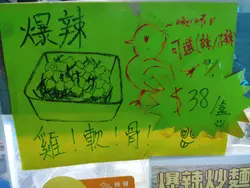 爆辣
可選/辣/不辣
$38/盒
雞！軟！骨！
爆辣炒麵